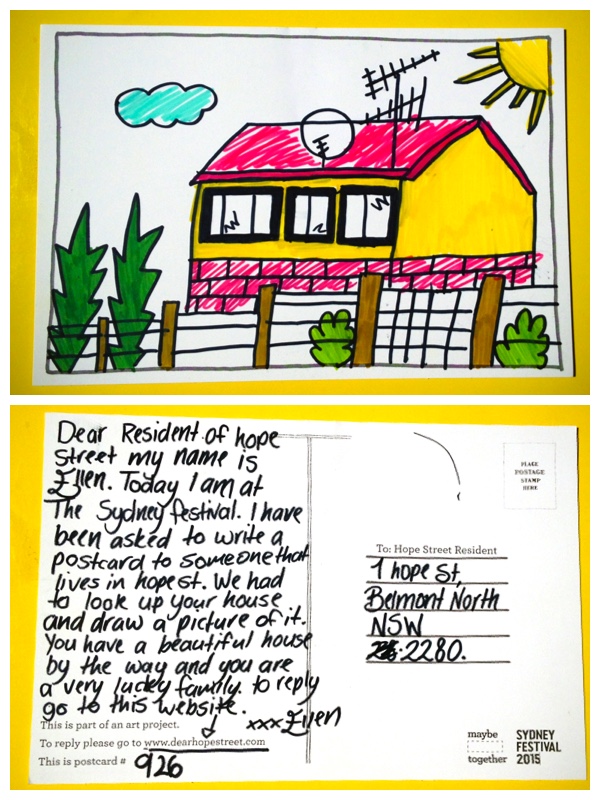 Dear Resident of hope
street my name is
Ellen. Today I am at
The Sydney festival. I have
been asked to write a
postcard to someone that
lives in hope st. We had
to look up your house
and draw a picture of it.
You have a beautiful house
by the way and you are
a very lucky family. to reply
go to this website.
xxx Ellen
This is part of an art project.
To reply please go to www.dearhopestreet.com
This is postcard # 926
PLACE
POSTAGE
STAMP
HERE
To: Hope Street Resident
1 hope St,
Belmont North
NSW
2280.
maybe
together
SYDNEY
FESTIVAL
2015